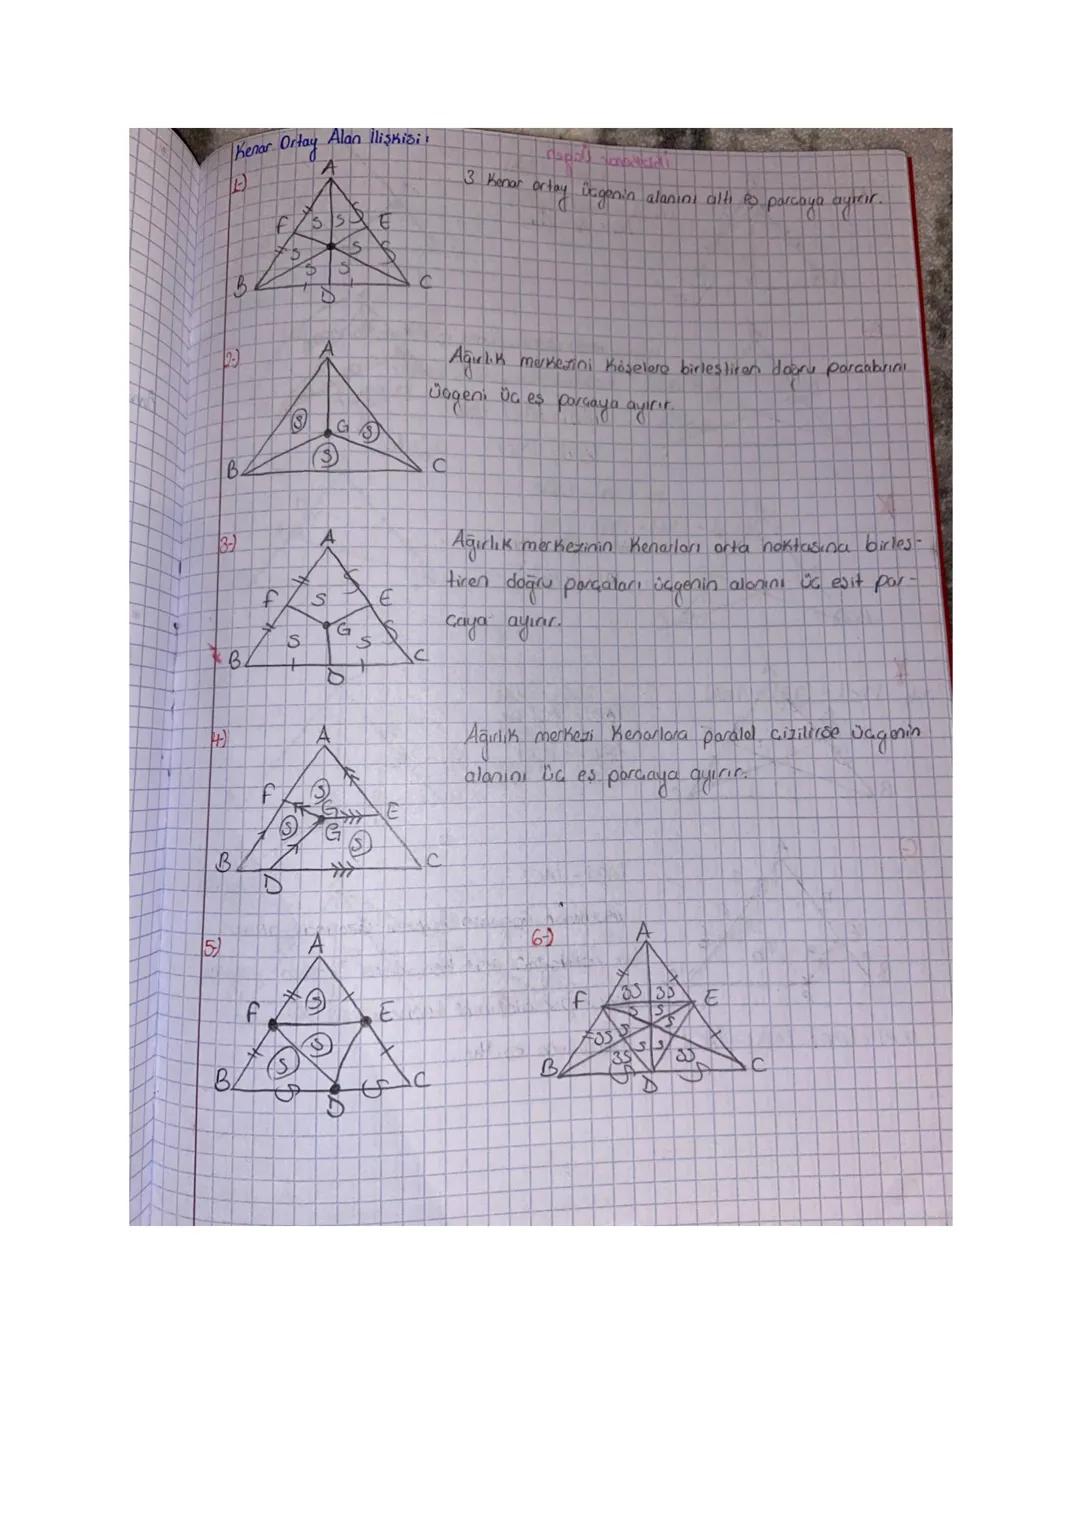 Kenar Ortay Alan İlişkisi:
1-)
A
3 Kenar ortay üçgenin alanını altı eş parçaya ayırır.
F S S E
S S
S S
B D C
2-)
A
Ağırlık merkezini Köşelere birleştiren doğru parçalarını
üçgeni üç eş parçaya ayırır.
S G S
S
B C
3-)
A
Ağırlık merkezinin Kenarları orta noktasına birleş-
tiren doğru parçaları üçgenin alanını üç eşit par-
çaya ayırır.
F S E
G
S S
B D C
4-)
A
Ağırlık merkezi Kenarlara paralel çizilirse üçgenin
alanını üç eş parçaya ayırır.
F S G E
S G S
B D C
5-)
A
F S E
S S
B D C
6-)
A
F 3S 3S E
S S
3S S S
S S
3S 3S
B D C